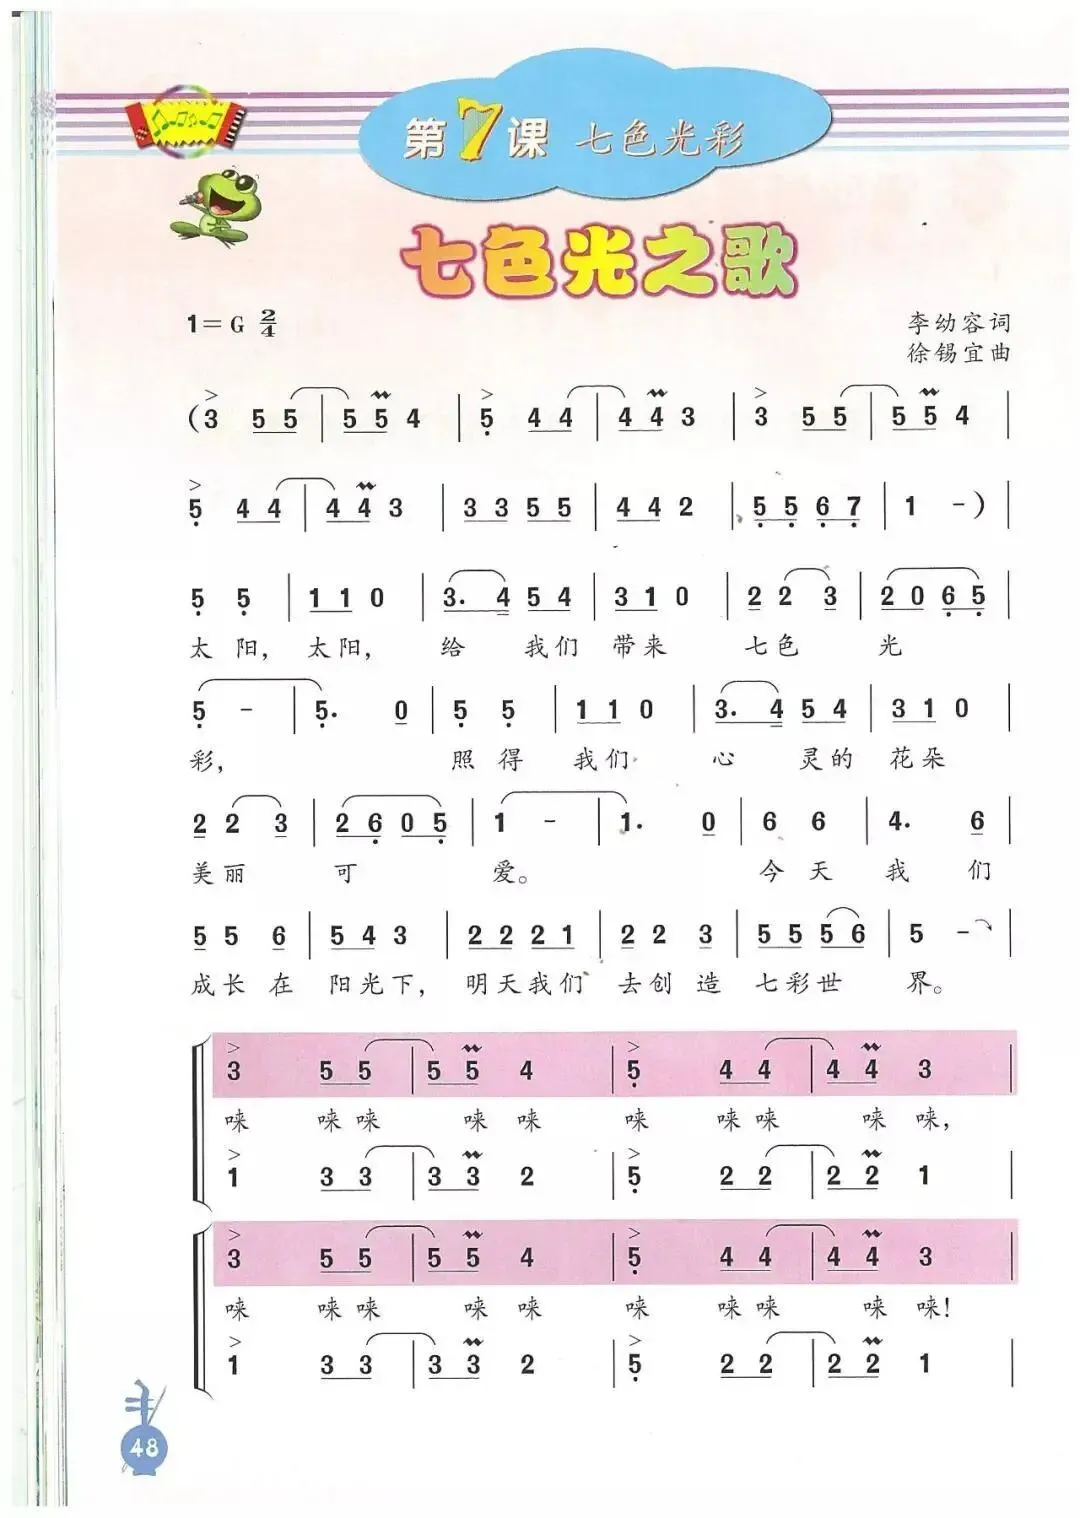 第7课 七色光彩
七色光之歌
1=G 2/4
李幼容词
徐锡宜曲
(3 5 5 | 5 5 4 | 5 4 4 | 4 4 3 | 3 5 5 | 5 5 4 |
5 4 4 | 4 4 3 | 3 3 5 5 | 4 4 2 | 5 5 6 7 | 1 -) |
5 5 | 1 1 0 | 3. 4 5 4 | 3 1 0 | 2 2 3 | 2 0 6 5 |
太 阳, 太阳, 给 我们 带来 七色 光
5 - | 5. 0 | 5 5 | 1 1 0 | 3. 4 5 4 | 3 1 0
彩, 照 得 我们 心 灵的 花朵
2 2 3 | 2 6 0 5 | 1 - | 1. 0 | 6 6 | 4. 6 |
美丽 可 爱。 今 天 我 们
5 5 6 | 5 4 3 | 2 2 2 1 | 2 2 3 | 5 5 5 6 | 5 - |
成长 在 阳光下, 明天我们 去创 造 七彩世 界。
3 5 5 | 5 5 4 | 5 4 4 | 4 4 3 |
唻 唻唻 唻 唻 唻 唻唻 唻 唻,
1 3 3 | 3 3 2 | 5 2 2 | 2 2 1 |
3 5 5 | 5 5 4 | 5 4 4 | 4 4 3
唻 唻唻 唻 唻 唻 唻唻 唻 唻!
1 3 3 | 3 3 2 | 5 2 2 | 2 2 1 |
48